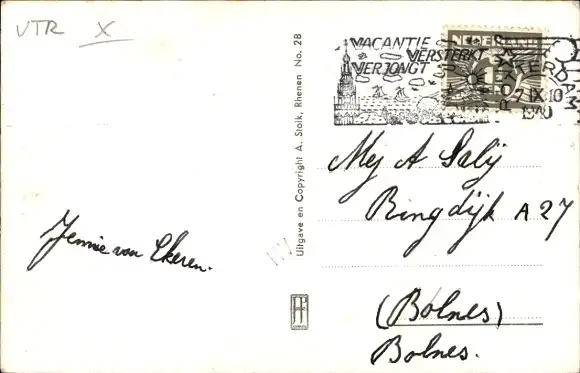 VTR X
VACANTIE
VERSTERKT
VERJONGT
NEDERLAND
ROTTERDAM
7 IX 10
1940
Uitgave en Copyright A. Stolk, Rhenen No. 28
Mej A Salij
Ringdijk A 27
(Bolnes)
Bolnes.
Jennie van Ekeren.